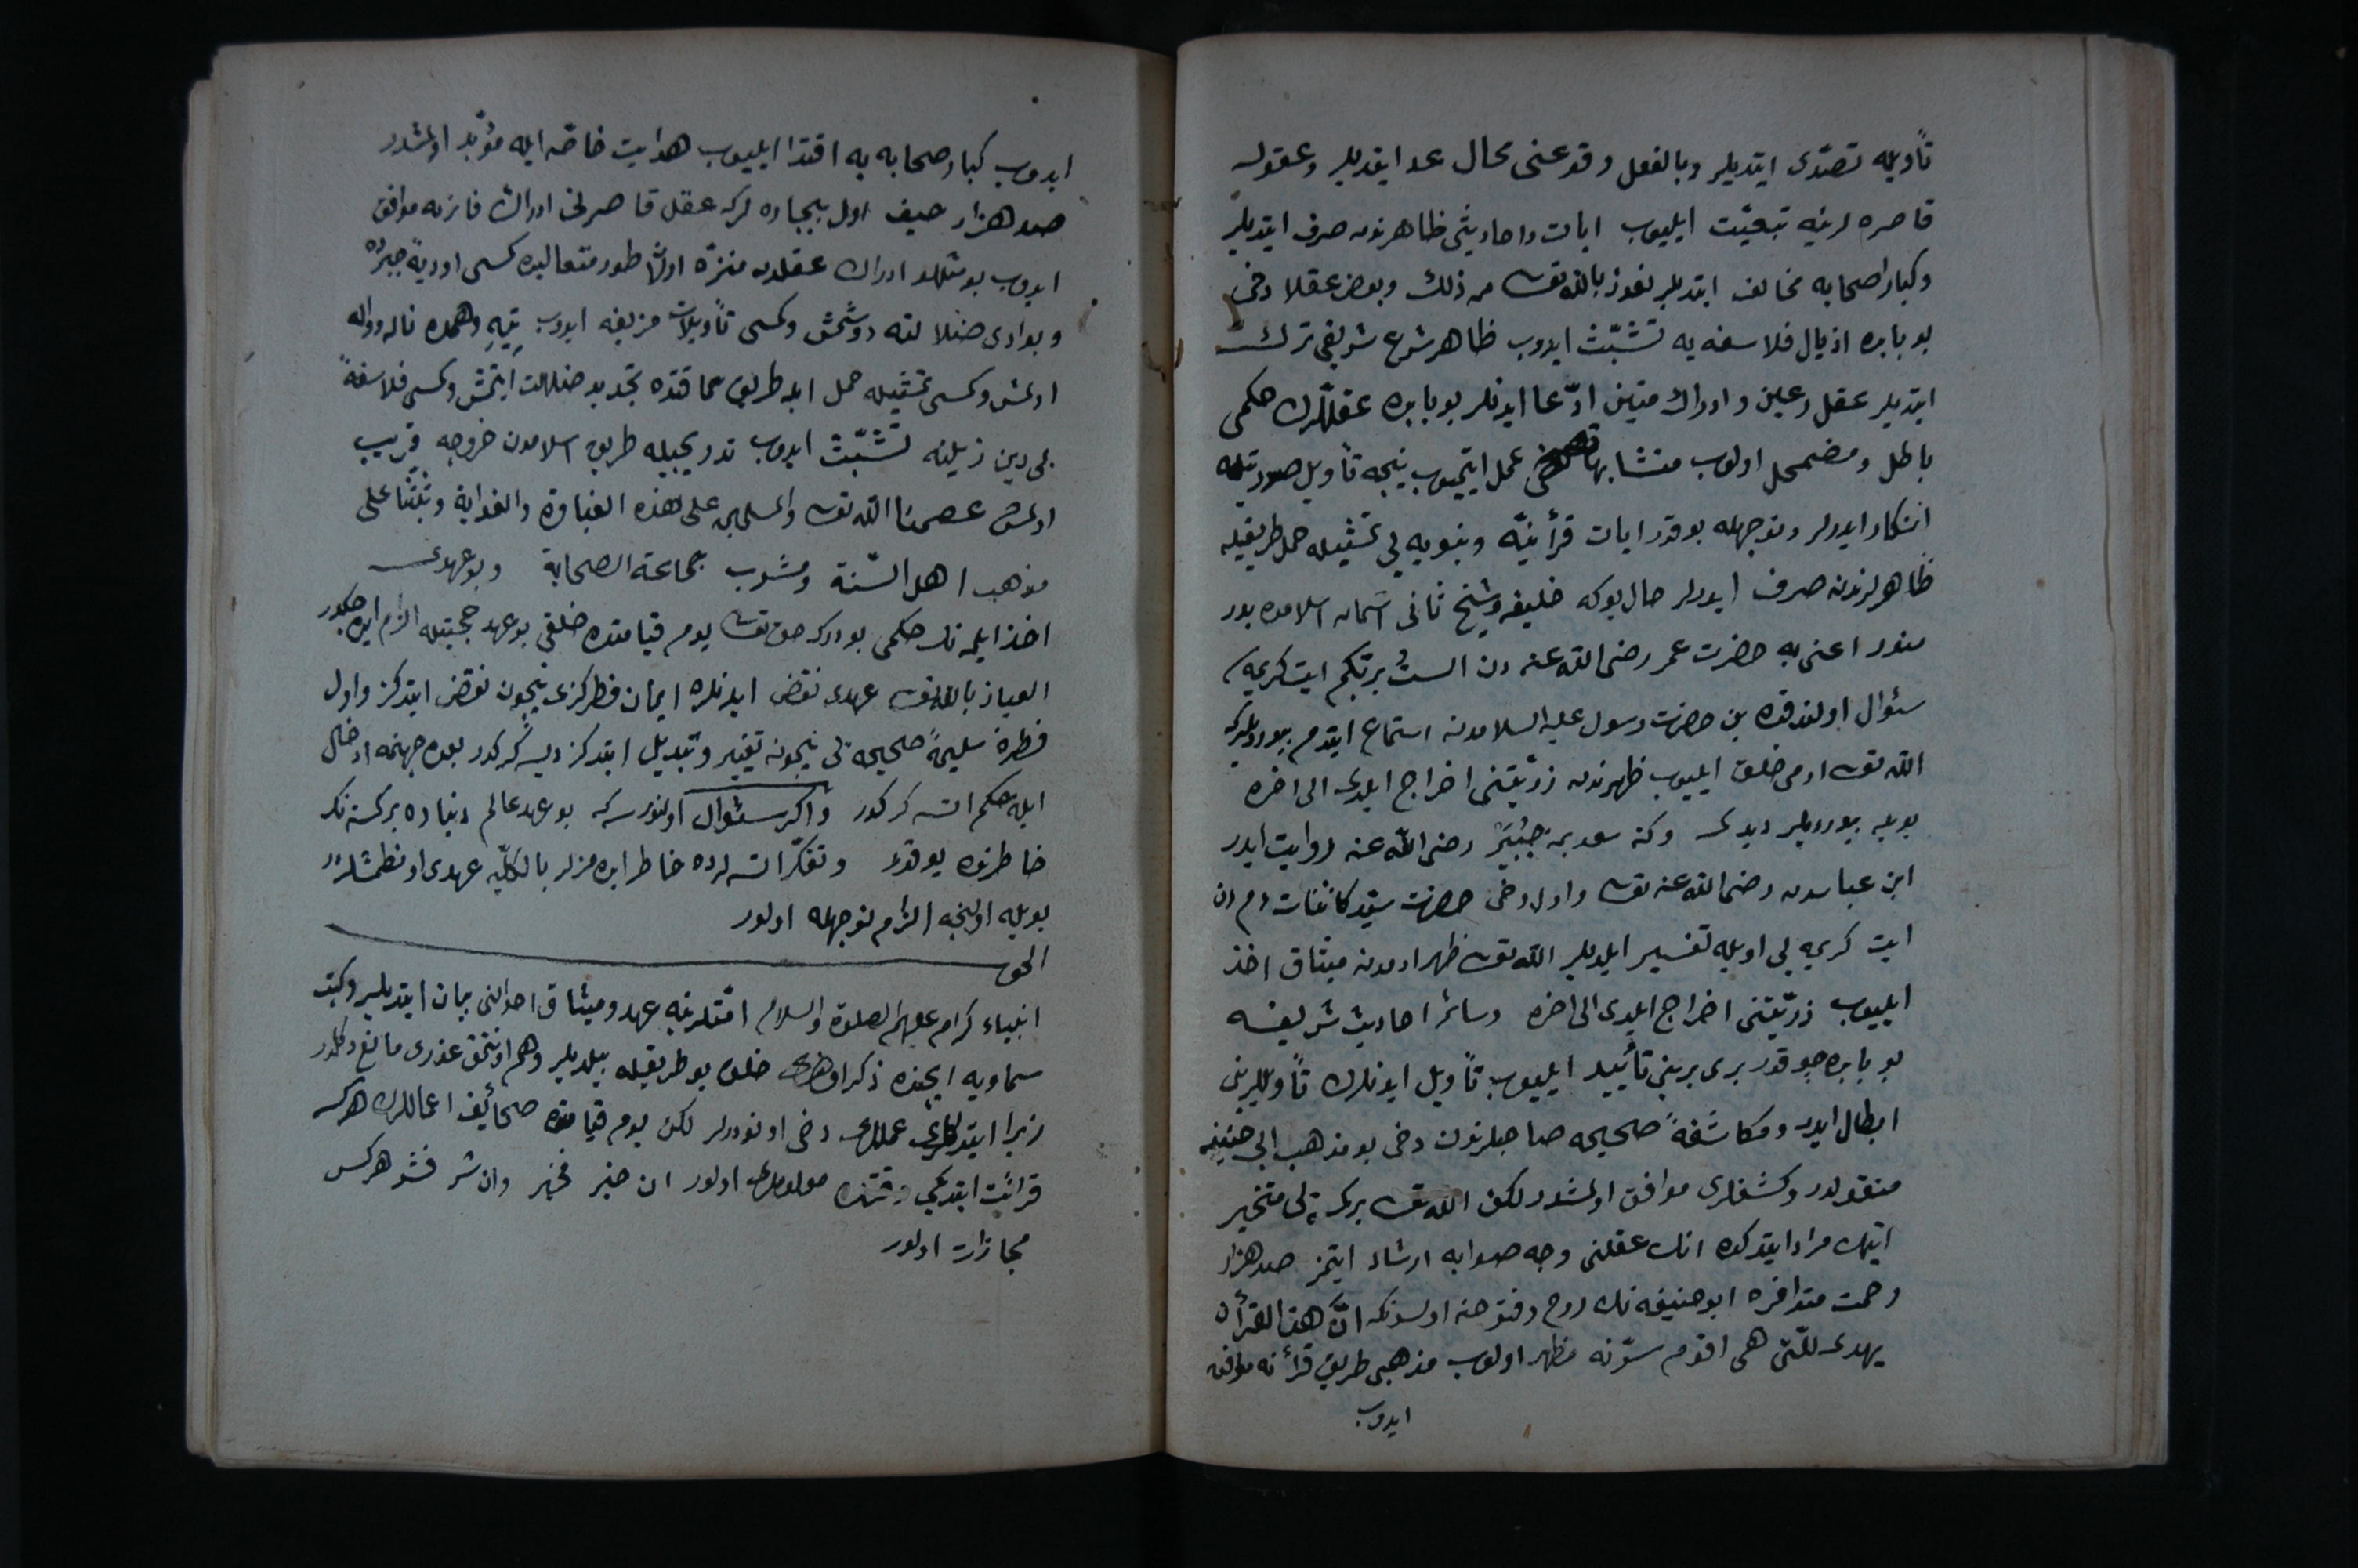 تأويله تصدّى ايتديلر وبالفعل وقوعنى محال عد ايتديلر وعقول
قاصره لرينه تبعيّت ايليوب ايات واحاديثى ظاهرندن صرف ايتديلر
وكبار اصحابه مخالف ايتديلر نعوذ بالله تعالى من ذلك وبعض عقلا دخى
بو بابده اذيال فلاسفه يه تشبّث ايدوب ظاهر شرع شريفى ترك
ايتديلر عقل رعين وادراك متين ادّعا ايدنلر بو بابده عقللرك حكمى
باطل ومضمحل اولوب متشابها عمل ايتميوب نيجه تأويل صورتيله
انكار ايدرلر ونوجهله بو قدر ايات قرأنيّه ونبويه يى تمثيله حمل طريقيله
ظاهرلرندن صرف ايدرلر حال بوكه خليفه وشيخ ثانى اسمان اسلامده بدر
منور اعنى به حضرت عمر رضى الله عنه دن الستُ بربّكم ايت كريمه
سئوال اولندقده بن حضرت رسول عليه السلامدن استماع ايتدم بيورديلركه
الله تعالى ادمى خلق ايليوب ظهرندن ذرّيّتنى اخراج ايلدى الى اخره
بويله بيورديلر ديدى وكذ سعد بن جُبَيَر رضى الله عنه روايت ايدر
ابن عباسدن رضى الله عنه تعالى واول دخى حضرت سيّد كائنات دم دن
ايت كريمه يى اويله تفسير ايلديلر الله تعالى ظهر ادمدن ميثاق اخذ
ايليوب ذرّيّتنى اخراج ايلدى الى اخره وسائر احاديث شريفه
بو بابده چوقدر برى برينى تأييد ايليوب تأويل ايدنلرك تأويللرينى
ابطال ايدر ومكاشفهٔ صحيحه صاحبلرندن دخى بو مذهب ابى حنيفه
منقولدر وكشفلرى موافق اولمشدر لكن الله تعالى بر كمسه يى متخير
ايتمك مراد ايتدكده انك عقلنى وجه صوابه ارشاد ايتمز صد هزار
رحمت متوافره ابو حنيفه نك روح وفتوحنه اولسونكه انّ هذا القرأن
يهدى للّتى هى اقوم سرّنه مظهر اولوب مذهبى طريق قرأنه موافق
ايدوب
ايدوب كبار صحابه يه اقتدا ايليوب هدايت خاصّه ايله مؤيّد اولمشدر
صد هزار حيف اول بيچاره لركه عقل قاصرنى ادراك فانزنه موافق
ايدوب بو مثللو ادراك عقلدن منزّه اولان طور متعاليده كمسى اوديهٔ حيرته
وبوادى ضلالته دوشمش وكمسى تأويلات مزيفه ايدوب تيهِ وهمده
اولمش وكمسى تمثيله حمل ايله طريق حماقتده تجديد ضلالت ايتمش وكمسى فلاسفهٔ
بى دين ذيلنه تشبّث ايدوب تدريجيله طريق اسلامدن خروجه قريب
اولمش عصمنا الله تعالى والمسلمين على هذه الغباوة والغواية وثبّتنا على
مذهب اهل السّنة ومشرب جماعة الصحابة وبو عهدى
اخذ ايلمه نك حكمى بودركه حق تعالى يوم قيامتده خلقى بو عهد حجّتيله الزام ايده جكدر
العياذ بالله تعالى عهدى نقض ايدنلره ايمان فطركزى نيچون نقض ايتدكز واول
فطرهٔ سليمهٔ صحيحه يى نيچون تغيير وتبديل ايتدكز ديسه كركدر بعده جهنّمه ادخال
ايله حكم اتسه كركدر واكر سئوال اولنورسه كه بو عهد عالم دنياده بر كمسه نك
خاطرنده يوقدر وتفكّر اتسه لرده خاطر ايده مزلر بالكلّيه عهدى اونطمشلردر
بويله اولنجه الزام نوجهله اولور
الجواب
انبياء كرام عليهم الصلوة والسلام امّتلرينه عهد وميثاق احوالنى بيان ايتديلر وكتب
سماويه ايچنده ذكر اولندى خلق بو طريقيله بيلديلر وهم اونتمق عذرى مانع دكلدر
زيرا ايتدكلرى عمللرى دخى اونودرلر لكن يوم قيامتده صحائف اعماللرك هركس
قرائت ايتديكى وقتده معلوملرى اولور ان خير فخير وان شر فشر هركس
مجازات اولور